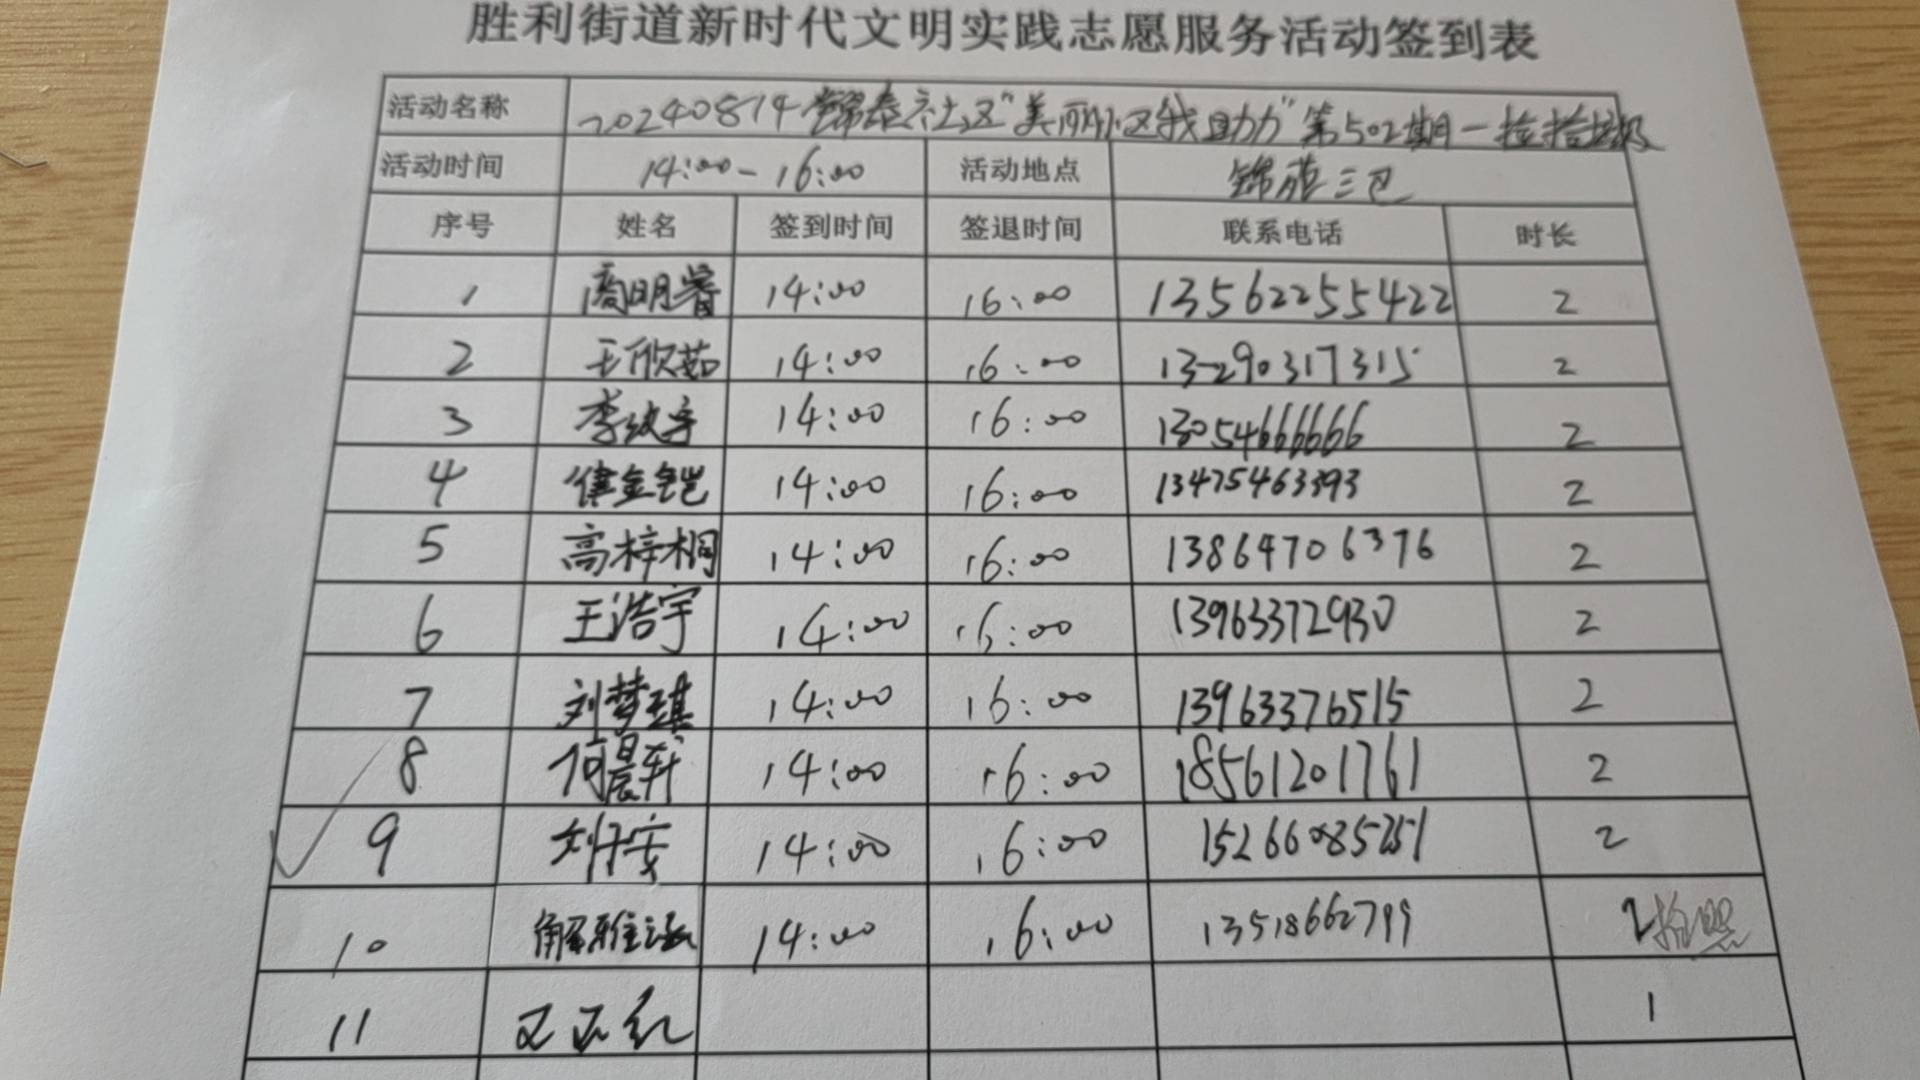 胜利街道新时代文明实践志愿服务活动签到表
活动名称 20240814锦泰社区"美丽小区我助力"第502期一捡拾垃圾
活动时间 14:00-16:00 活动地点 锦苑三区
序号 姓名 签到时间 签退时间 联系电话 时长
1 周明睿 14:00 16:00 13562255422 2
2 王欣茹 14:00 16:00 13290317315 2
3 李 宇 14:00 16:00 13054666666 2
4 金铠 14:00 16:00 13475463393 2
5 高梓桐 14:00 16:00 13864706376 2
6 王浩宇 14:00 16:00 13963372930 2
7 刘梦琪 14:00 16:00 13963376515 2
8 何晨轩 14:00 16:00 18561201761 2
9 刘子安 14:00 16:00 15266085251 2
10 解雅涵 14:00 16:00 13518662799 2 拍照
11 1